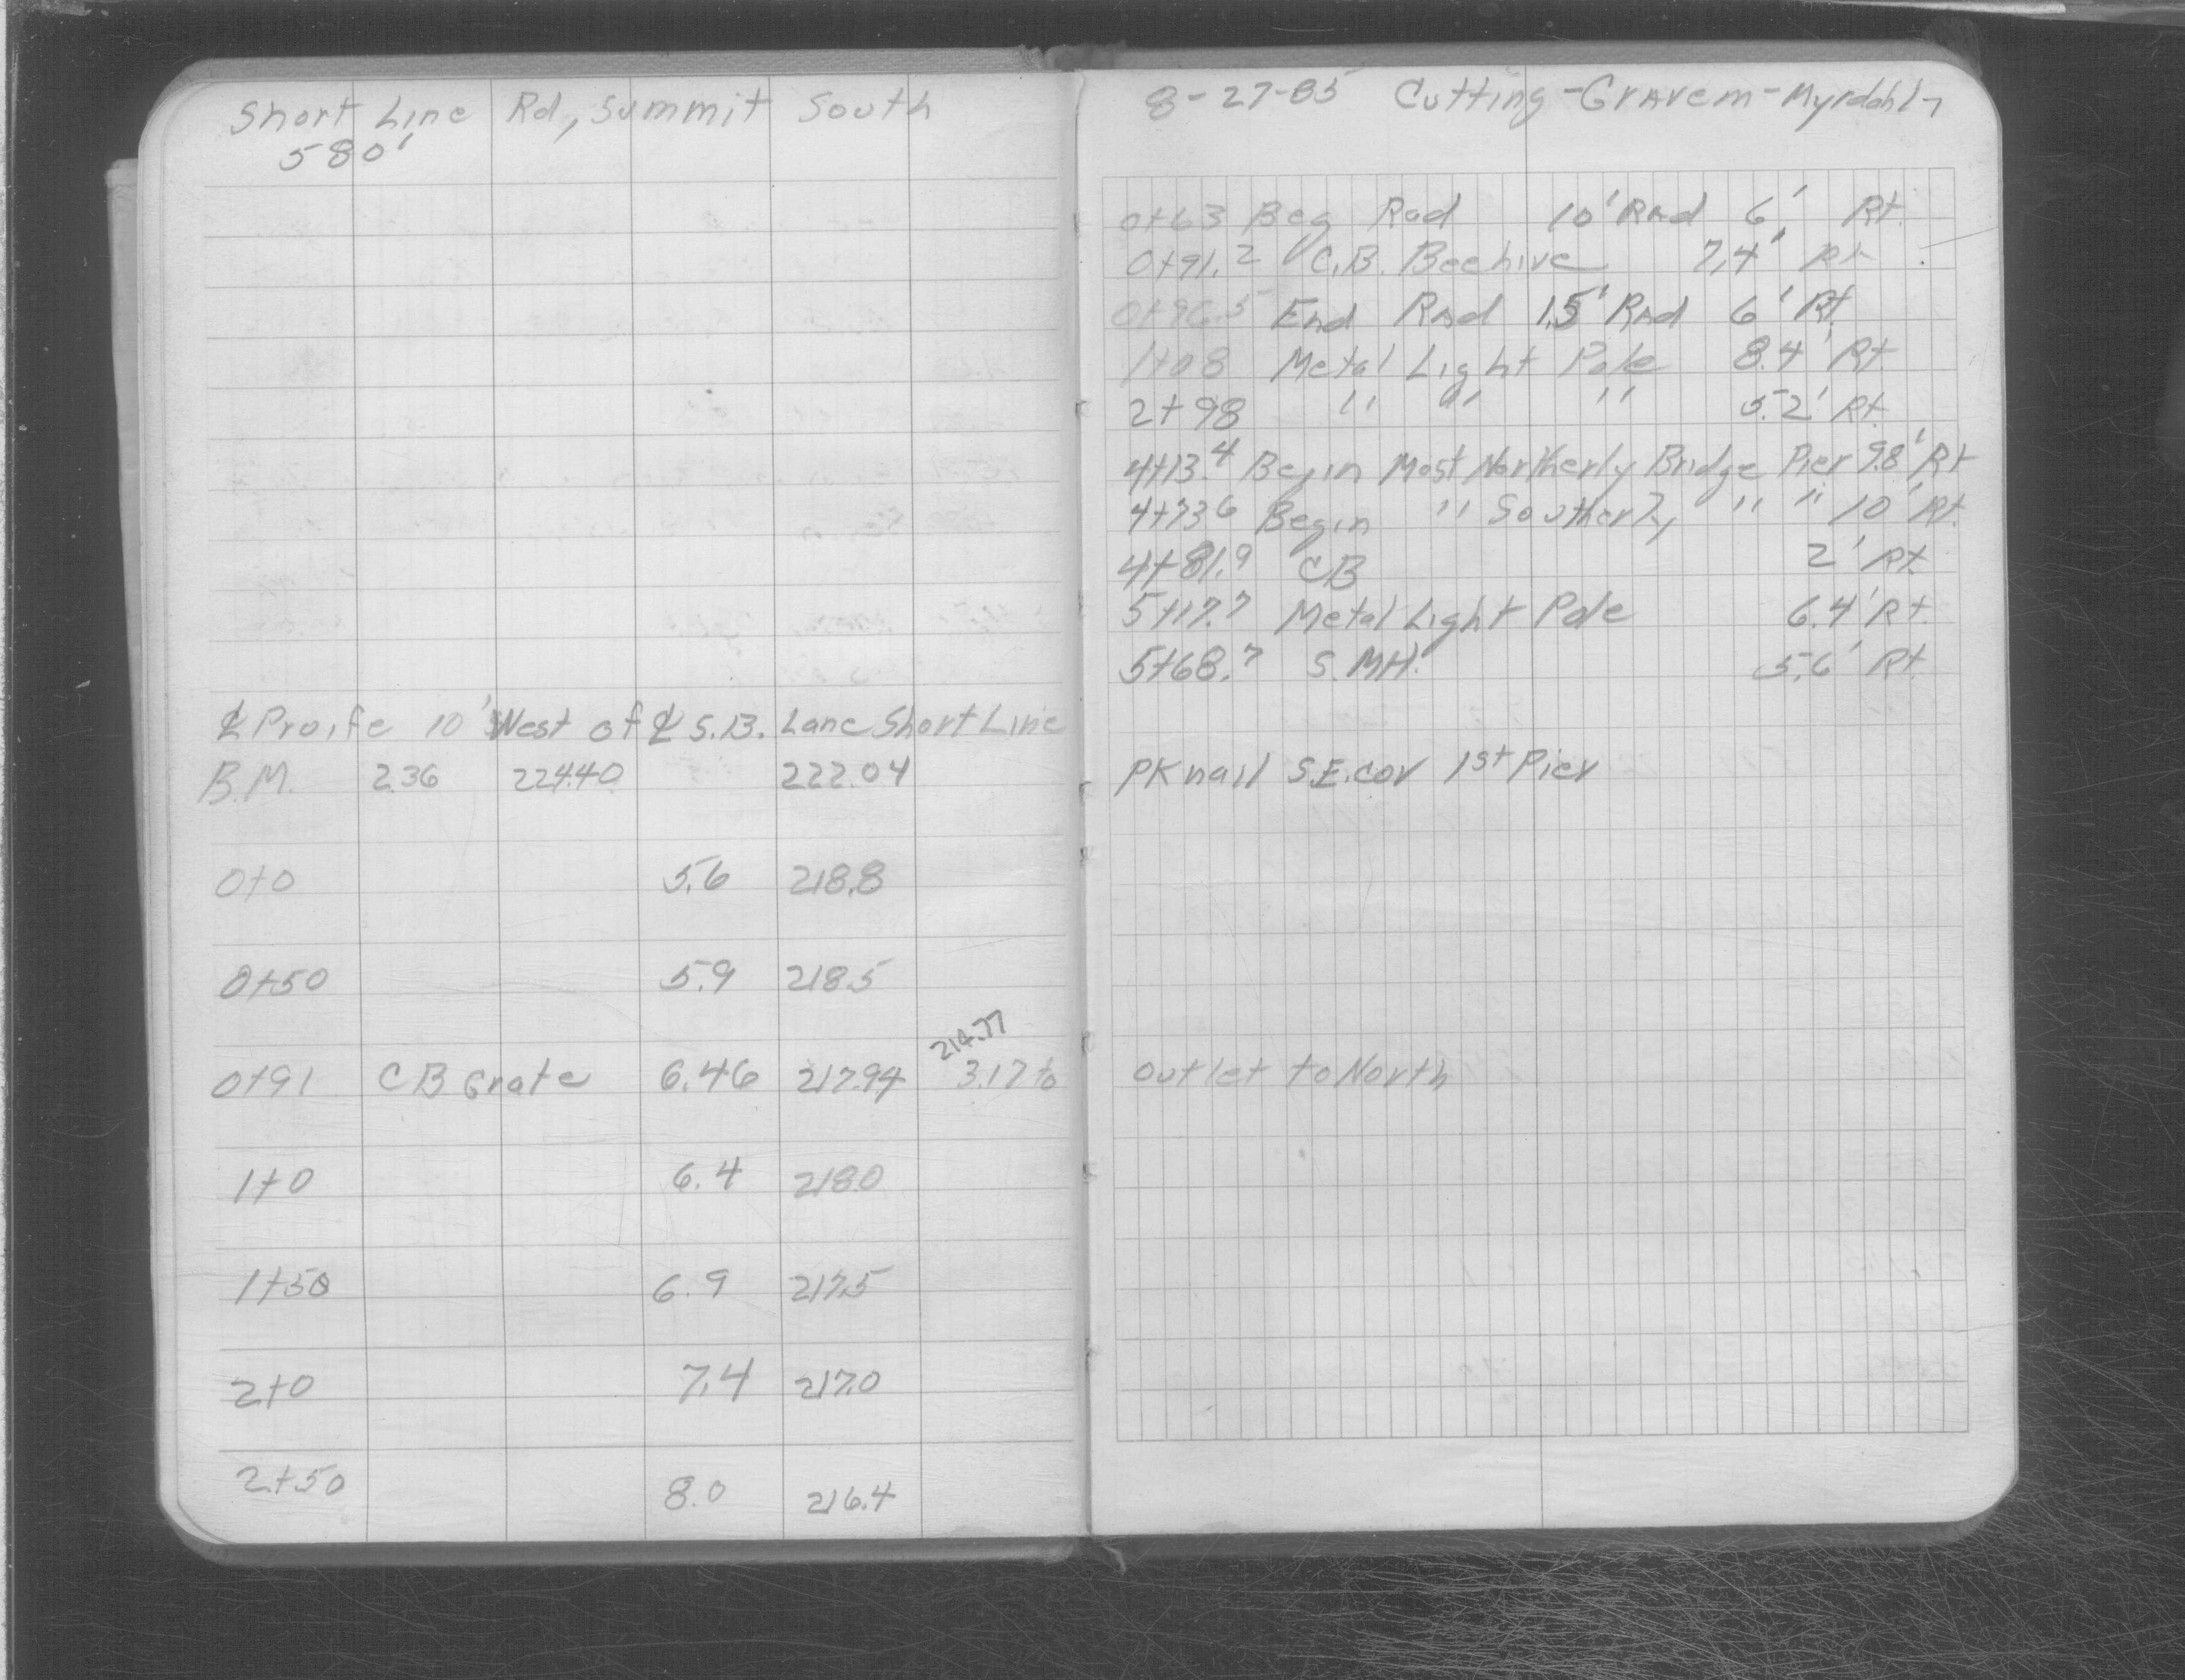 Short Line Rd, Summit South
580'
℄ Proife 10' West of ℄ S.B. Lane Short Line
B.M. 2.36 224.40 222.04
0+0 5.6 218.8
0+50 5.9 218.5
214.77
0+91 CB Grate 6.46 217.94 3.17 to
1+0 6.4 218.0
1+50 6.9 217.5
2+0 7.4 217.0
2+50 8.0 216.4
8-27-85 Cutting-Gravem-Myrdahl
0+63 Beg Rad 10' Rad 6' Rt.
0+91.2 C.B. Beehive 7.4' Rt.
0+96.5 End Rad 15' Rad 6' Rt.
1+08 Metal Light Pole 8.4' Rt.
2+98 " " " 5.2' Rt.
4+13.4 Begin Most Northerly Bridge Pier 9.8' Rt
4+73.6 Begin " Southerly " " 10' Rt.
4+81.9 CB 2' Rt.
5+17.7 Metal Light Pole 6.4' Rt.
5+68.7 S.MH. 5.6' Rt.
PK nail S.E. cor 1st Pier
Outlet to North